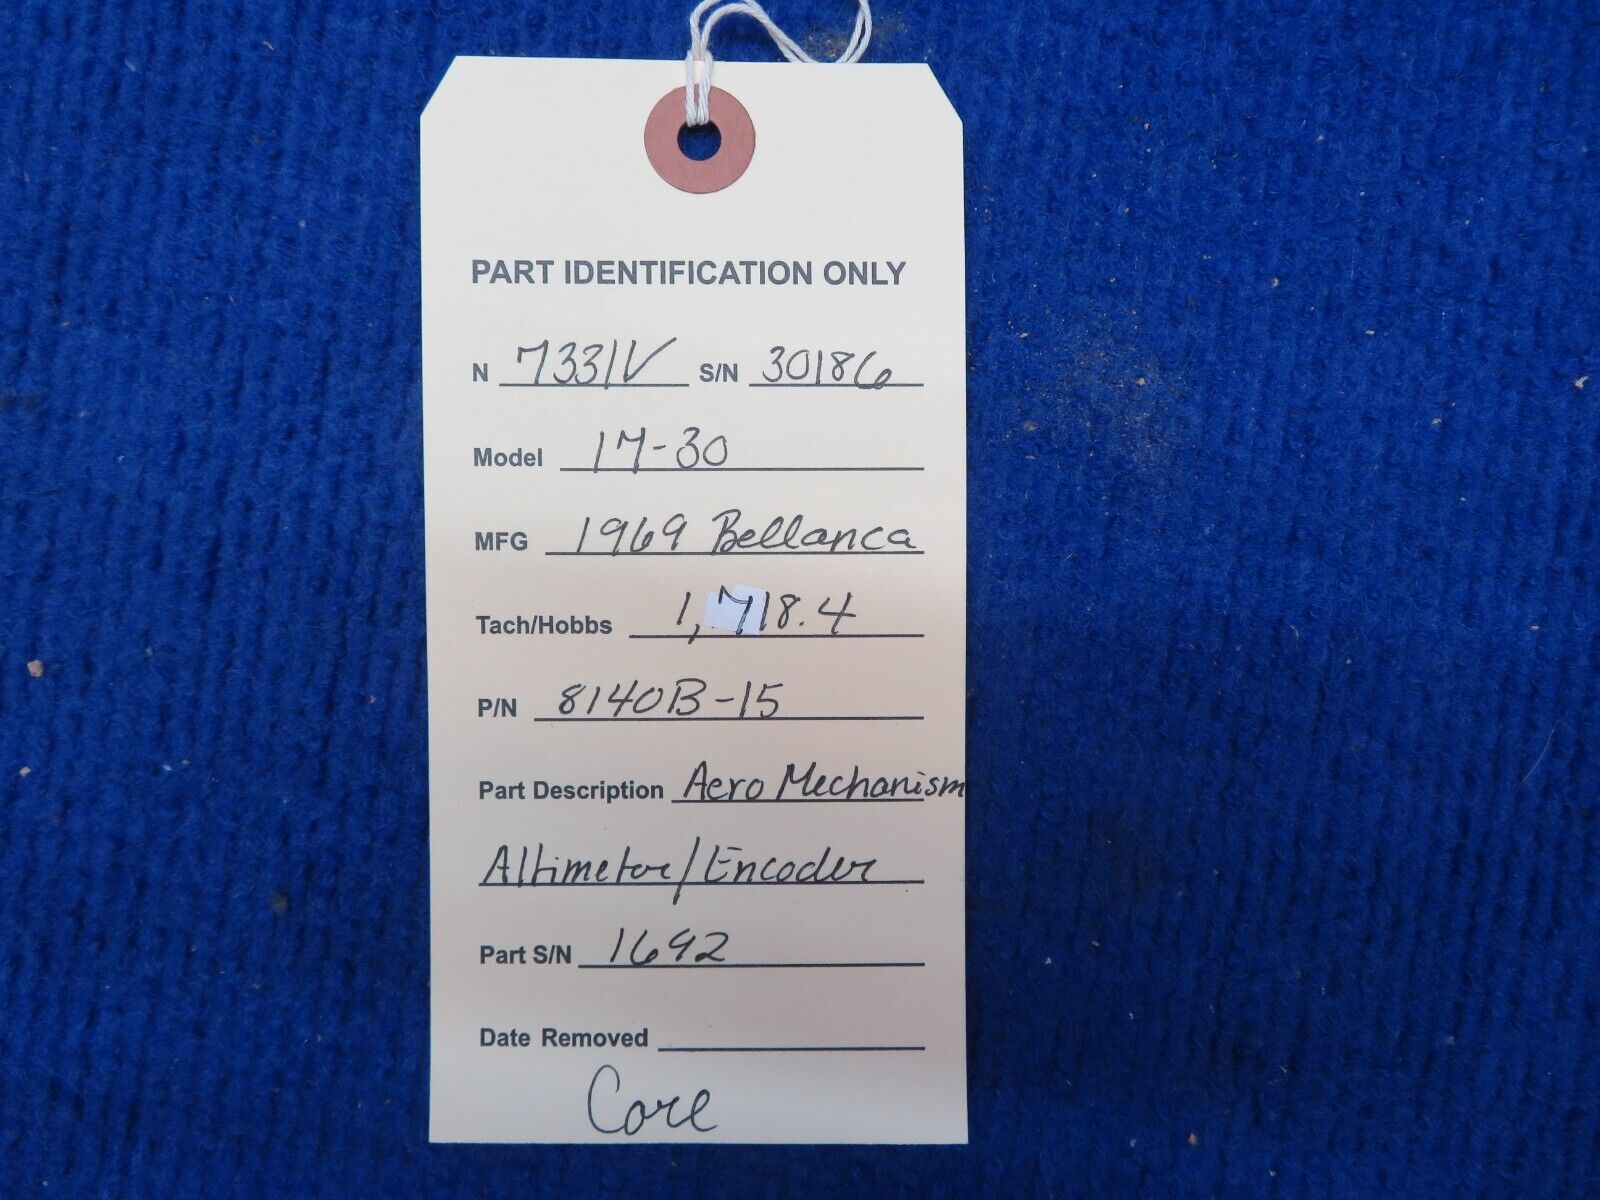 PART IDENTIFICATION ONLY
N 7331V S/N 30186
Model 17-30
MFG 1969 Bellanca
Tach/Hobbs 1,718.4
P/N 8140B-15
Part Description Aero Mechanism
Altimeter/Encoder
Part S/N 1692
Date Removed
Core